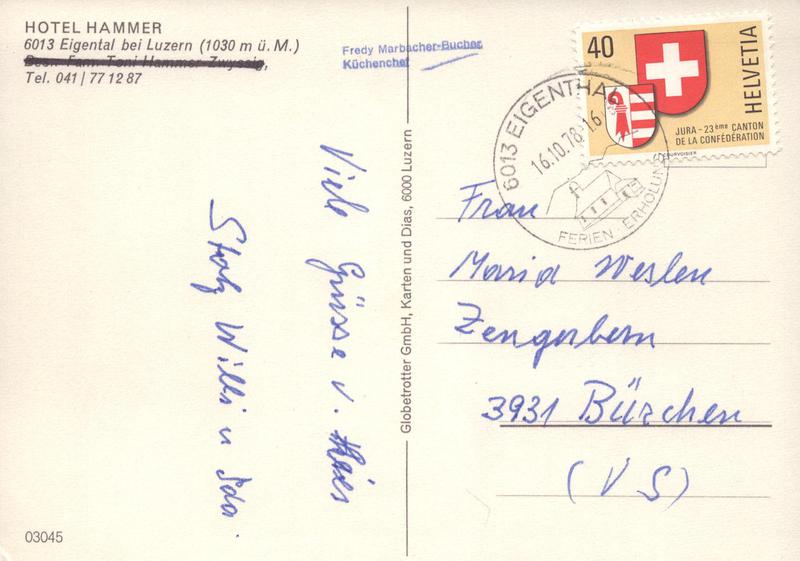 HOTEL HAMMER
6013 Eigental bei Luzern (1030 m ü. M.)
Bes.: Fam. Toni Hammer-Zwyssig,
Tel. 041 / 77 12 87
Fredy Marbacher-Bucher
Küchenchef
40
HELVETIA
JURA - 23ème CANTON
DE LA CONFÉDÉRATION
COURVOISIER
6013 EIGENTHAL
16.10.78-16
FERIEN · ERHOLUNG
Viele Grüsse v.
Willi u Ida.
Globetrotter GmbH, Karten und Dias, 6000 Luzern
Frau
Maria Werlen
3931 Bürchen
(VS)
03045